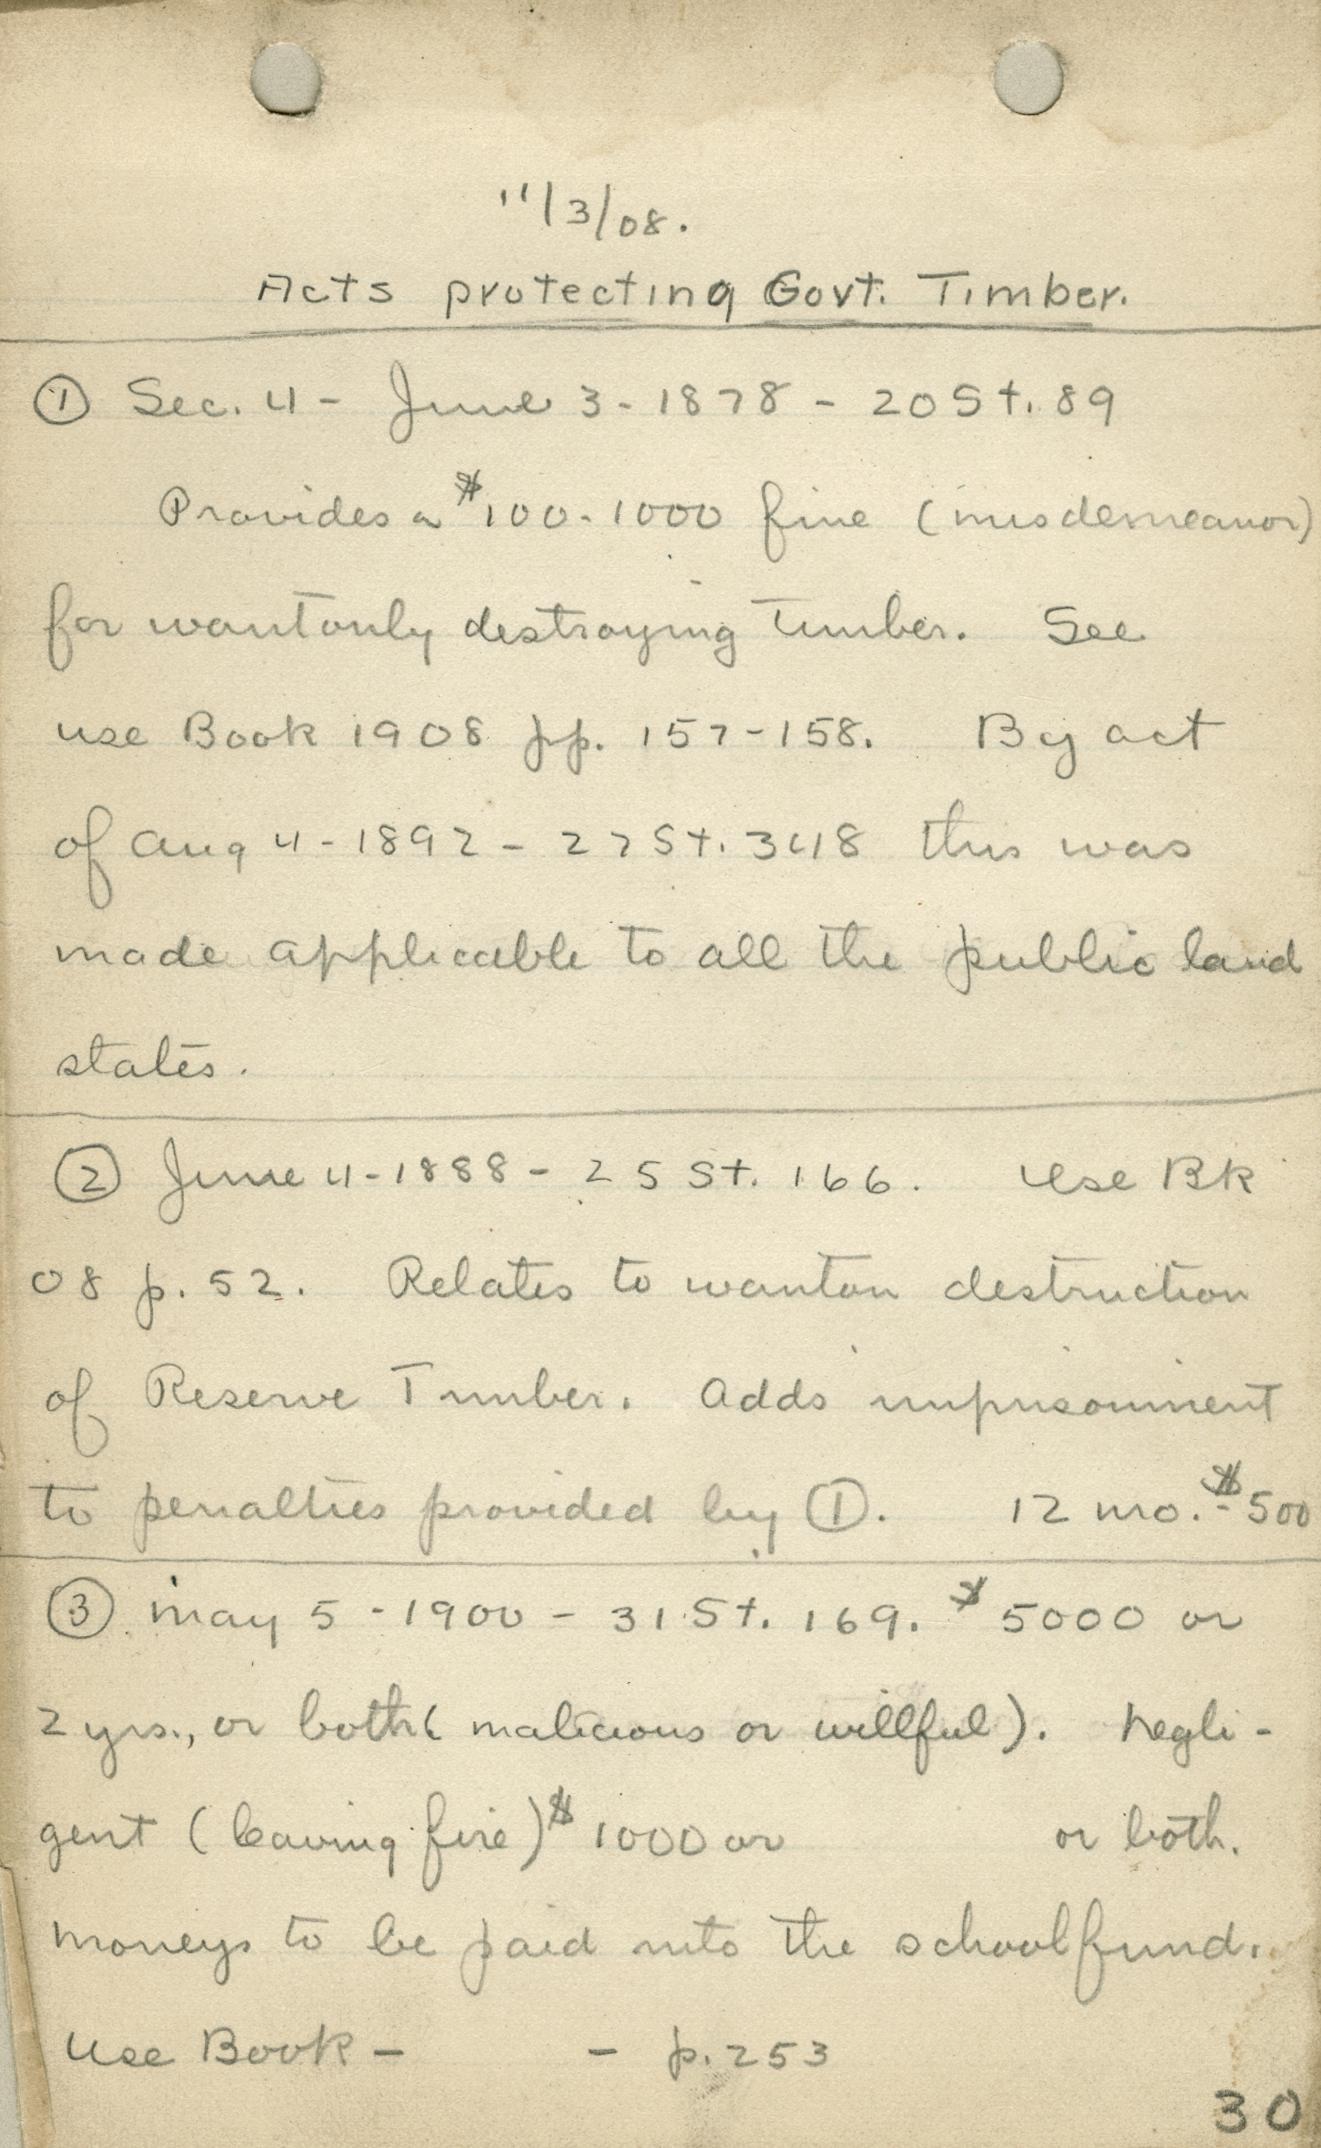 11/3/08.
Acts protecting Govt. Timber.
① Sec. 4 - June 3 - 1878 - 20 St. 89
Provides a $100-1000 fine (misdemeanor)
for wantonly destroying timber. See
use Book 1908 pp. 157-158. By act
of Aug 4 - 1892 - 27 St. 348 this was
made applicable to all the public land
states.
② June 4 - 1888 - 25 St. 166. Use Bk
08 p. 52. Relates to wanton destruction
of Reserve Timber. Adds imprisonment
to penalties provided by ①. 12 mo. - $500
③ May 5 - 1900 - 31 St. 169. $5000 or
2 yrs., or both (malicious or willful). Negli-
gent (leaving fire) $1000 or or both.
Moneys to be paid into the school fund.
Use Book - - p. 253
30